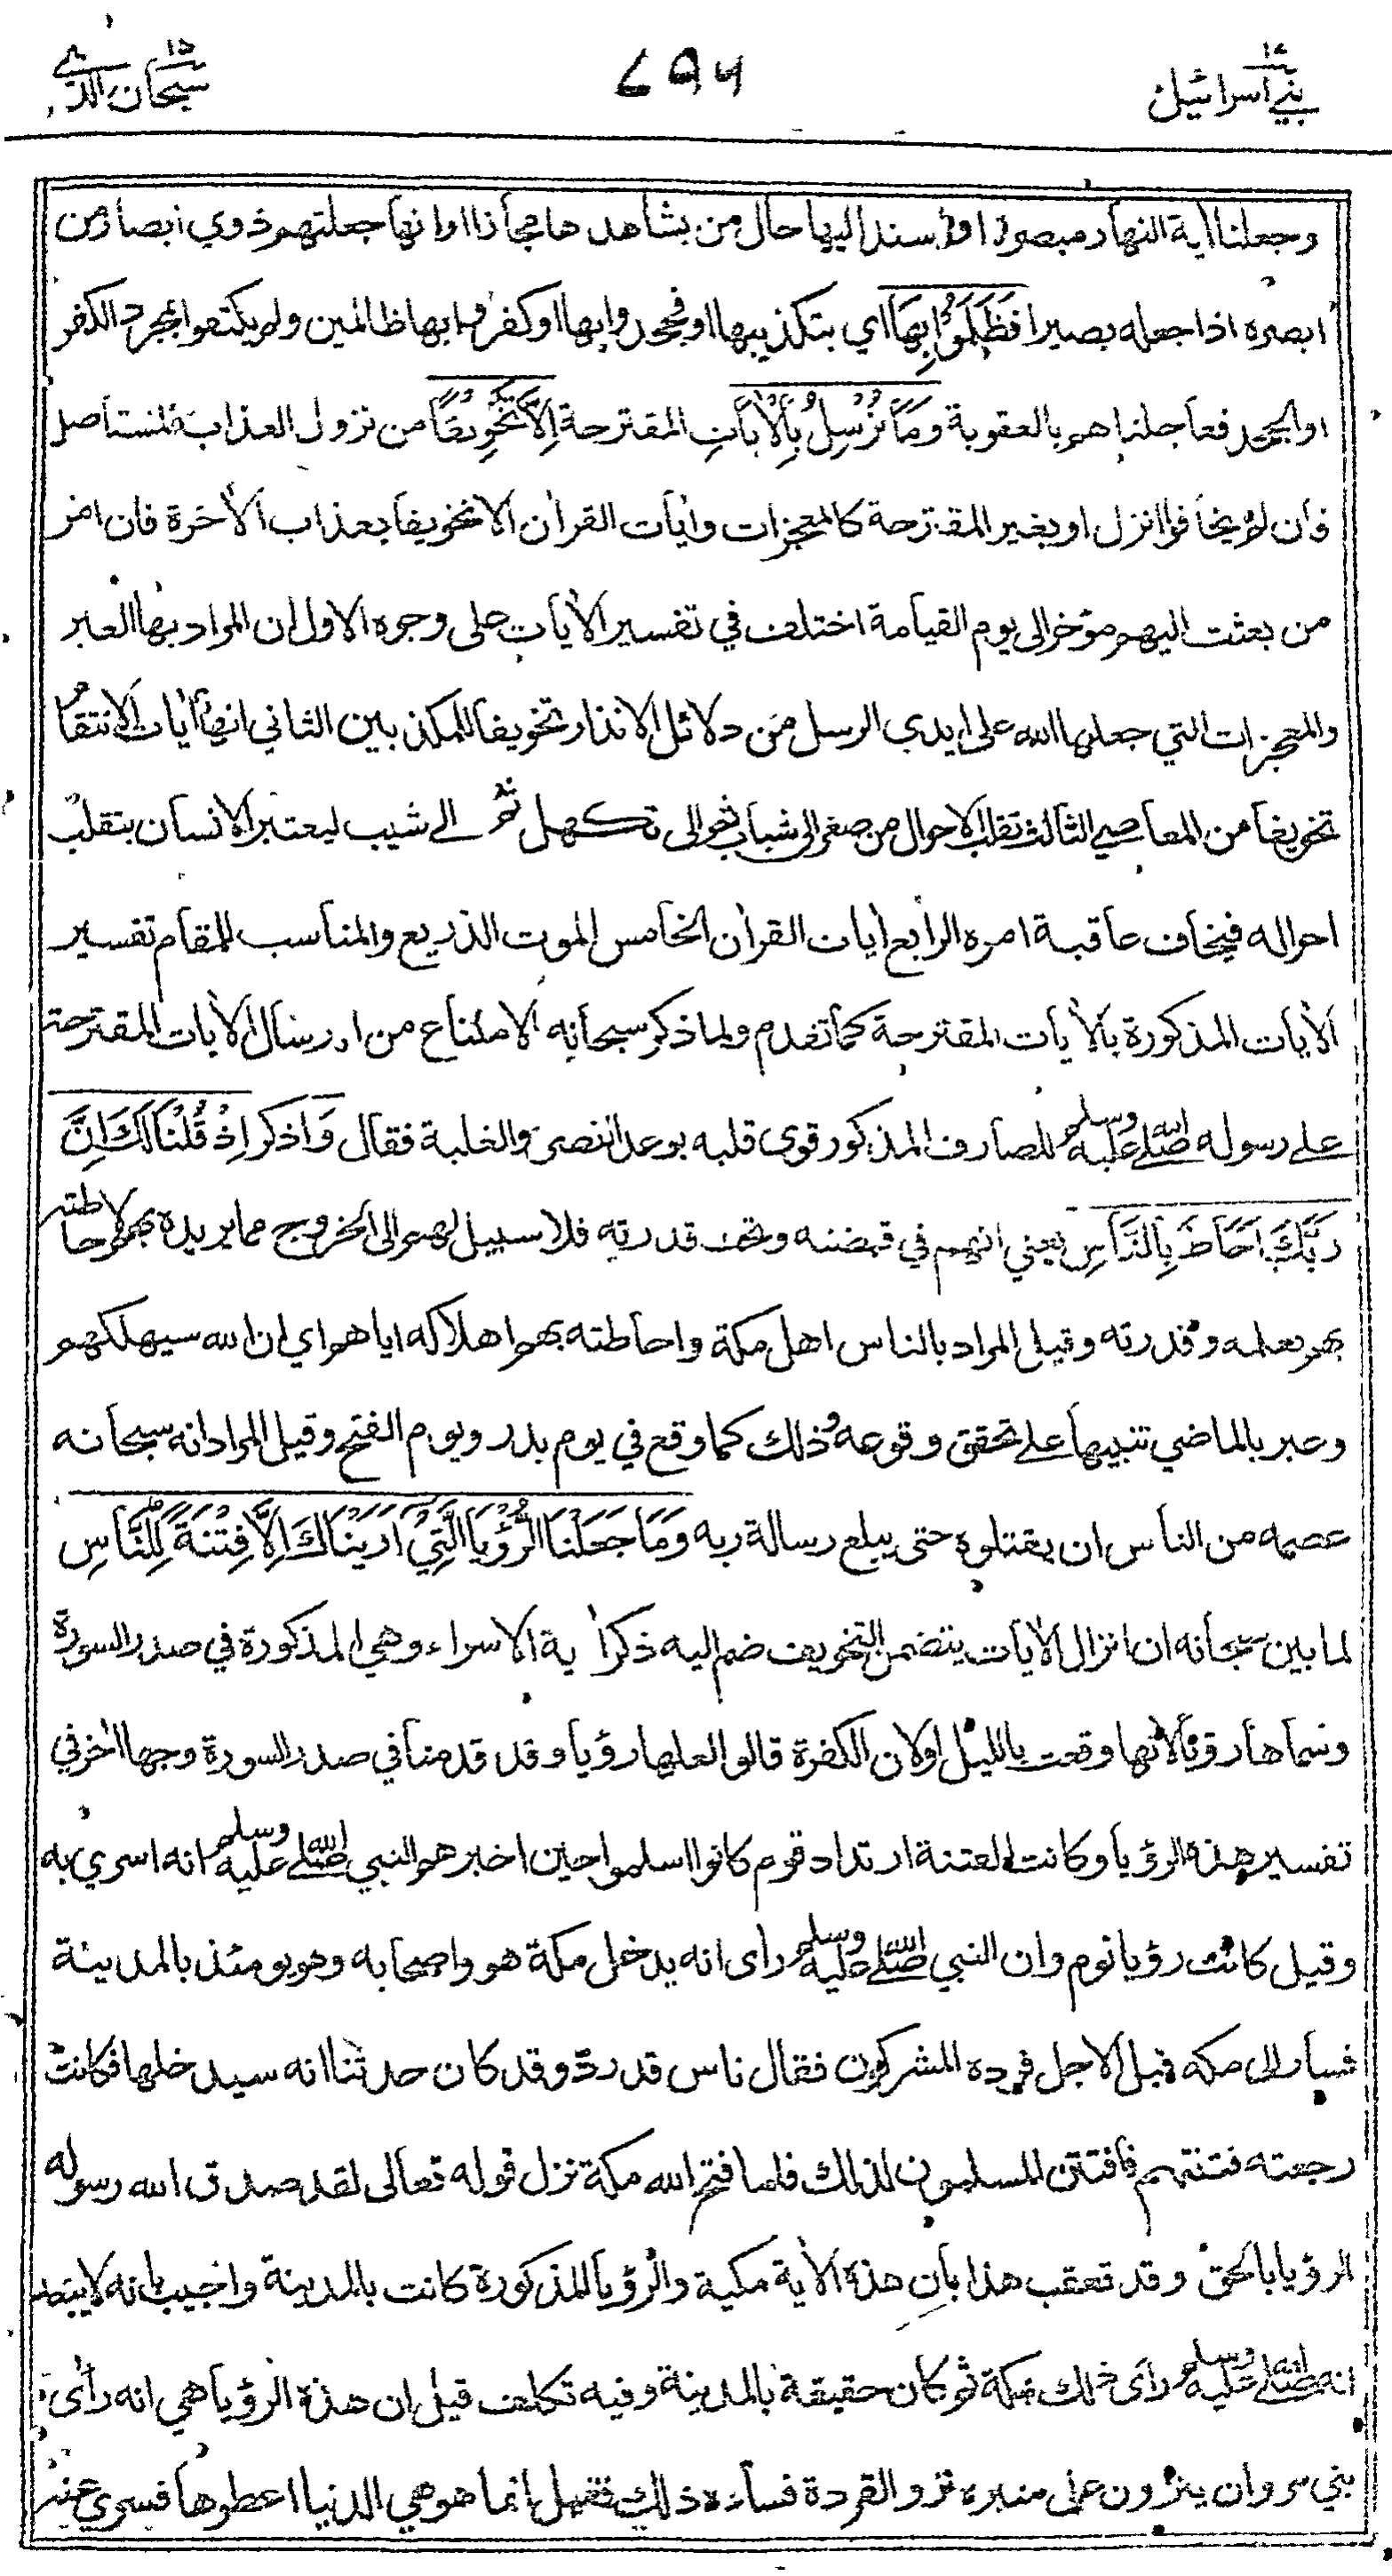 بني اسرائيل ١٧
٦٩٧
سبحان الذي ١٥
وجعلنا اٰية النهار مبصرة او اسند اليها حال من يشاهدها مجازا او انها جعلتهم ذوي ابصار من
ابصره اذا جعله بصيرا فَظَلَمُوْا بِهَا اي بتكذيبها او فجحدوا بها او كفروا بها ظالمين ولم يكتفوا بمجرد الكفر
او الجحد فعاجلناهم بالعقوبة وَمَا نُرْسِلُ بِالْاٰيَاتِ المقترحة اِلَّا تَخْوِيْفًا من نزول العذاب المستأصل
فان لم يخافوا نزل او بغير المقترحة كالمعجزات واٰيات القراٰن الا تخويفا بعذاب الاٰخرة فان امر
من بعثت اليهم مؤخر الى يوم القيامة اختلف في تفسير الاٰيات على وجوه الاول ان المراد بها العبر
والمعجزات التي جعلها الله على ايدي الرسل من دلائل الانذار تخويفا للمكذبين الثاني انها اٰيات الانتقام
تخويفا من المعاصي الثالث تقلب الاحوال من صغر الى شباب ثم الى تكهل ثم الى شيب ليعتبر الانسان بتقلب
احواله فيخاف عاقبة امره الرابع اٰيات القراٰن الخامس الموت الذريع والمناسب للمقام تفسير
الاٰيات المذكورة بالاٰيات المقترحة كما تقدم ولما ذكر سبحانه الامتناع من ارسال الاٰيات المقترحة
على رسوله صلى الله عليه وسلم للصارف المذكور قوى قلبه بوعد النصر والغلبة فقال وَ اذكر اِذْ قُلْنَا لَكَ اِنَّ
رَبَّكَ اَحَاطَ بِالنَّاسِ يعني انهم في قبضته وتحت قدرته فلا سبيل لهم الى الخروج مما يريده بهم لاحاطته
بهم بعلمه وقدرته وقيل المراد بالناس اهل مكة واحاطته بهم اهلاكه اياهم اي ان الله سيهلكهم
وعبر بالماضي تنبيها على تحقق وقوعه وذلك كما وقع في يوم بدر ويوم الفتح وقيل المراد انه سبحانه
عصمه من الناس ان يقتلوه حتى يبلغ رسالة ربه وَمَا جَعَلْنَا الرُّؤْيَا الَّتِيْ اَرَيْنَاكَ اِلَّا فِتْنَةً لِّلنَّاسِ
لما بين سبحانه ان انزال الاٰيات يتضمن التخويف ضم اليه ذكر اٰية الاسراء وهي المذكورة في صدر السورة
وسماها رؤيا لانها وقعت بالليل او لان الكفرة قالوا لعلها رؤيا وقد قدمنا في صدر السورة وجها اٰخر في
تفسير هذه الرؤيا وكانت الفتنة ارتداد قوم كانوا اسلموا حين اخبرهم النبي صلى الله عليه وسلم انه اسري به
وقيل كانت رؤيا نوم وان النبي صلى الله عليه وسلم رأى انه يدخل مكة هو واصحابه وهو يومئذ بالمدينة
فسار الى مكة قبل الاجل فرده المشركون فقال ناس قد ردّ وقد كان حدثنا انه سيدخلها فكانت
رجعته فتنتهم فافتتن المسلمون لذلك فلما فتح الله مكة نزل قوله تعالى لقد صدق الله رسوله
الرؤيا بالحق وقد تعقب هذا بان هذه الاٰية مكية والرؤيا المذكورة كانت بالمدينة واجيب بانه لا يبعد
انه صلى الله عليه وسلم رأى ذلك بمكة ثم كان حقيقة بالمدينة وفيه تكلف قيل ان هذه الرؤيا هي انه رأى
بني مروان ينزون على منبره نزو القردة فساءه ذلك فقيل انما هو هي الدنيا اعطوها فسري عنه